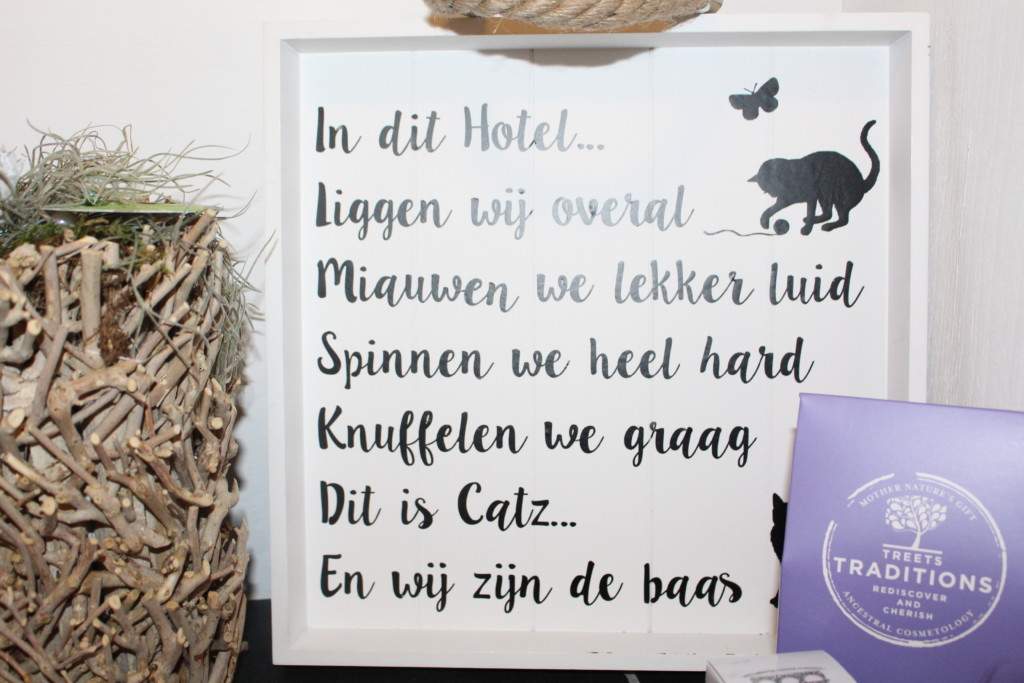 In dit Hotel...
Liggen wij overal
Miauwen we lekker luid
Spinnen we heel hard
Knuffelen we graag
Dit is Catz...
En wij zijn de baas
MOTHER NATURE'S GIFT
TREETS
TRADITIONS
REDISCOVER
AND
CHERISH
ANCESTRAL COSMETOLOGY